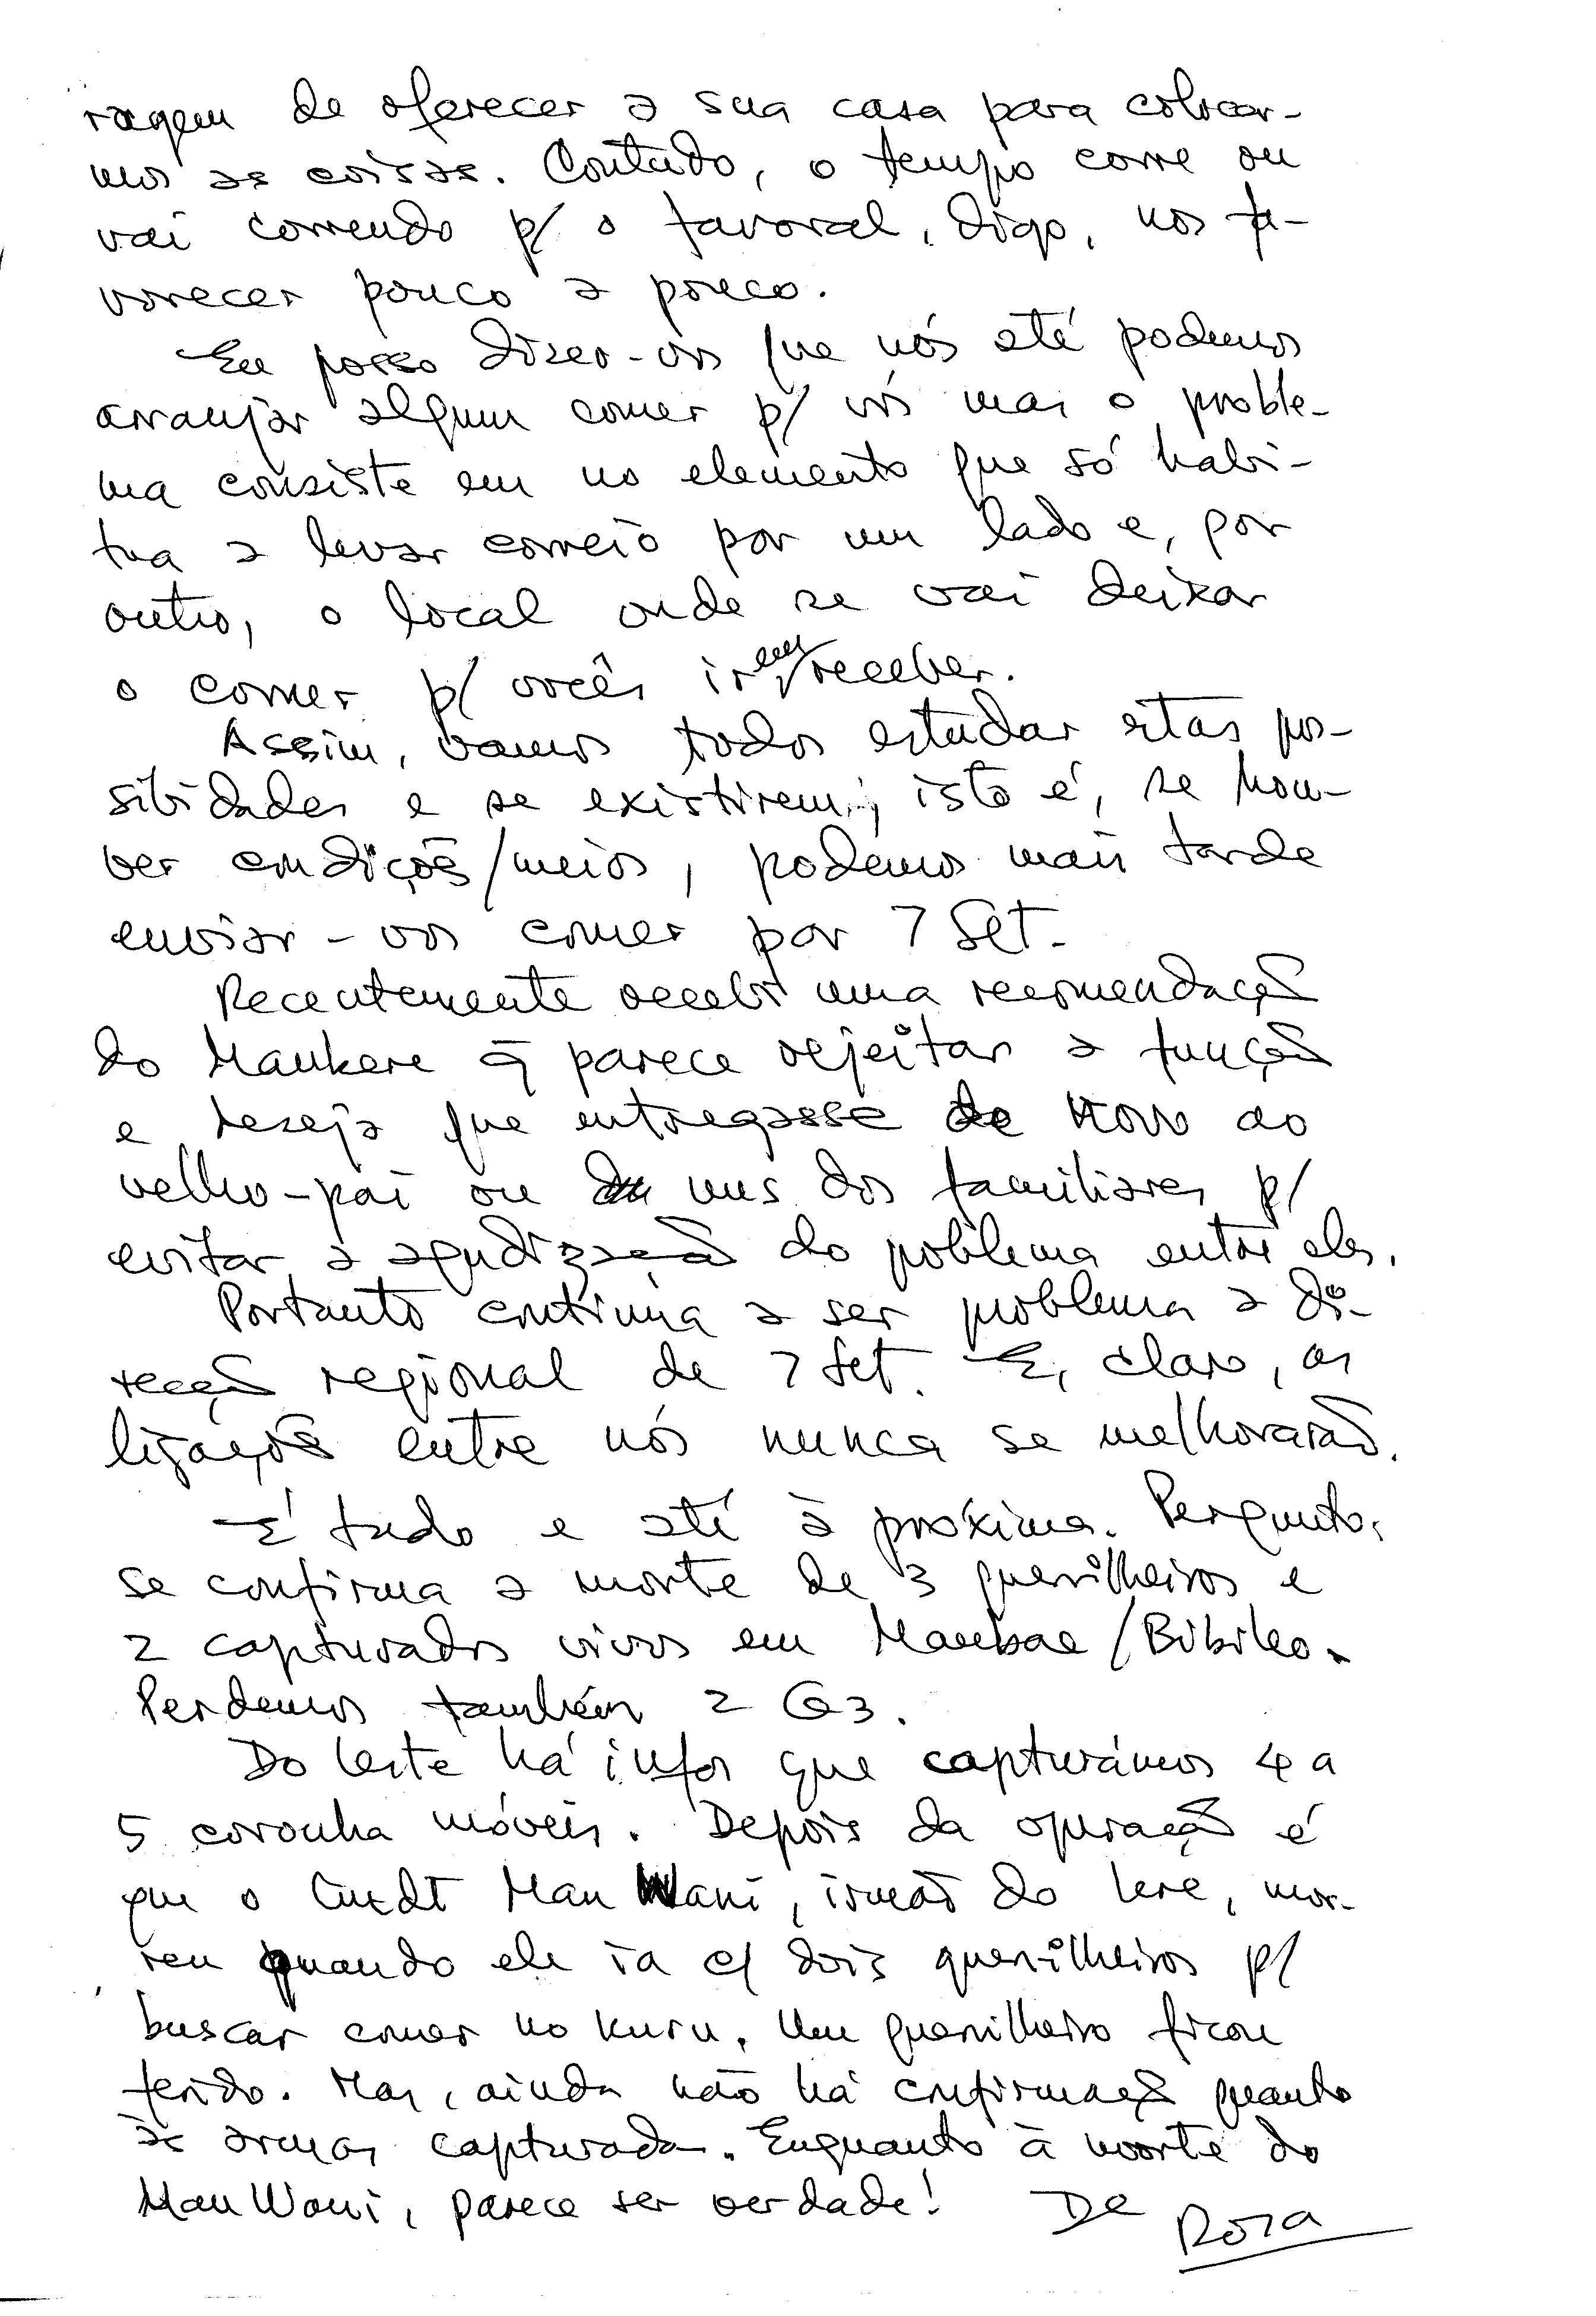 ragem de oferecer a sua casa para colocar-
mos as coisas. Contudo, o tempo corre ou
vai correndo p/ o favoral, digo, nos fa-
vorecer pouco a pouco.
Eu posso dizer-vos que nós até podemos
arranjar algum comer p/ vós mas o proble-
ma consiste em no elemento que só habi-
tua a levar correio por um lado e, por
outro, o local onde se vai deixar
o comer p/ vocês irem receber.
Assim, vamos todos estudar estas pos-
sibidades e se existirem, isto é, se hou-
ver condições/meios, podemos mais tarde
enviar-vos comer por 7 Set.
Recentemente recebi uma recomendação
do Maukere q̄ parece rejeitar a função
e deseja que entregasse de novo ao
velho-pai ou uns dos familiares p/
evitar a agudização do problema entre eles.
Portanto continua a ser problema a di-
recção regional de 7 Set. E, claro, as
ligações entre nós nunca se melhorarão.
É tudo e até à próxima. Pergunto,
se confirma a morte de 3 guerrilheiros e
2 capturados vivos em Maubae/Bibileo.
Perdemos também 2 G3.
Do leste há infos que capturámos 4 a
5 coronha móveis. Depois da operação é
que o Cmdt Mau Wani, irmão do Lere, mor-
reu quando ele ia c/ dois guerrilheiros p/
buscar comer no kuru. Um guerrilheiro ficou
ferido. Mas, ainda não há confirmação quanto
às armas capturadas. Enquanto à morte do
Mau Wani, parece ser verdade! De
Rosa